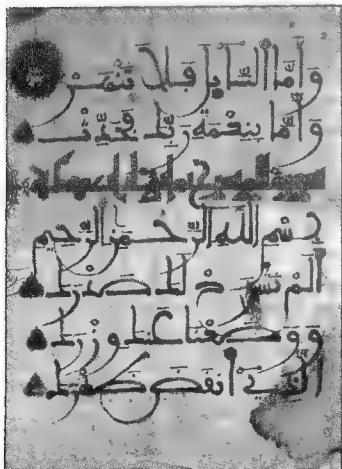 وَأَمَّا السَّايِلَ فَلَا تَنْهَرْ
وَأَمَّا بِنِعْمَةِ رَبِّكَ فَحَدِّثْ
بِسْمِ اللَّهِ الرَّحْمَنِ الرَّحِيمِ
أَلَمْ نَشْرَحْ لَكَ صَدْرَكَ
وَوَضَعْنَا عَنْكَ وِزْرَكَ
الَّذِي أَنْقَضَ ظَهْرَكَ